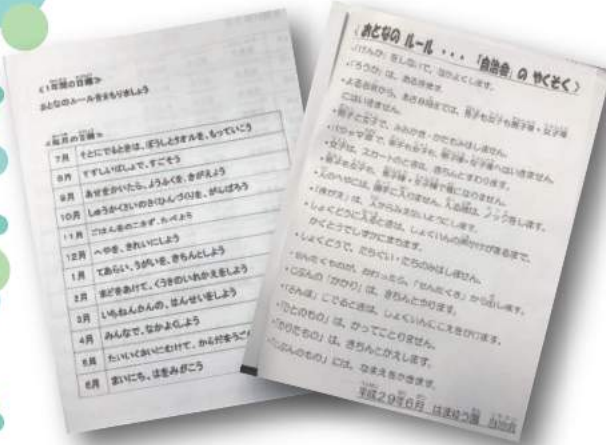 ≪1年間の目標≫
おとなのルールをまもりましょう
≪毎月の目標≫
7月 そとにでるときは、ぼうしとタオルを、もっていこう
8月 すずしいばしょで、すごそう
9月 あせをかいたら、ようふくを、きがえよう
10月 しゅうかくさいのさくひんづくりを、がんばろう
11月 ごはんをのこさず、たべよう
12月 へやを、きれいにしよう
1月 てあらい、うがいを、きちんとしよう
2月 まどをあけて、くうきのいれかえをしよう
3月 いちねんかんの、はんせいをしよう
4月 みんなで、なかよくしよう
5月 たいいくあいにむけて、からだをうご
6月 まいにち、はをみがこう
《おとなの ルール・・・「自治会」の やくそく》
・「けんか」をしないで、なかよくします。
・「ろうか」は、あるきます。
・よる から、あさ までは、男子も女子も男子棟・女子棟
にはいきません。
・男子と女子で、 かたもみはしません。
・パジャマ で、男子も女子も、男子棟・女子棟へはいきません。
・女子は、スカートのときは、きちんとすわります。
・男子も女子も、男子棟・女子棟で になりません。
・人のへやには、勝手に入りません。入る は、ノックをします。
・「きがえ」は、人からみえないようにします。
・しょくどうに入るときは、しょくいんの があるまで、
かくとうでしずかにまちます。
・しょくどうで、たちぐい・たちのみはしません。
・せんたくものが、おわったら、「せんたくき」から出します。
・じぶんの「かかり」は、きちんとやります。
・「さんぽ」にでるときは、しょくいんにこえをかけます。
・「ひとのもの」は、かってにとりません。
・「かりたもの」は、きちんとかえします。
・「じぶんのもの」には、なまえをかきます。
平成29年6月 はまゆう園 自治会